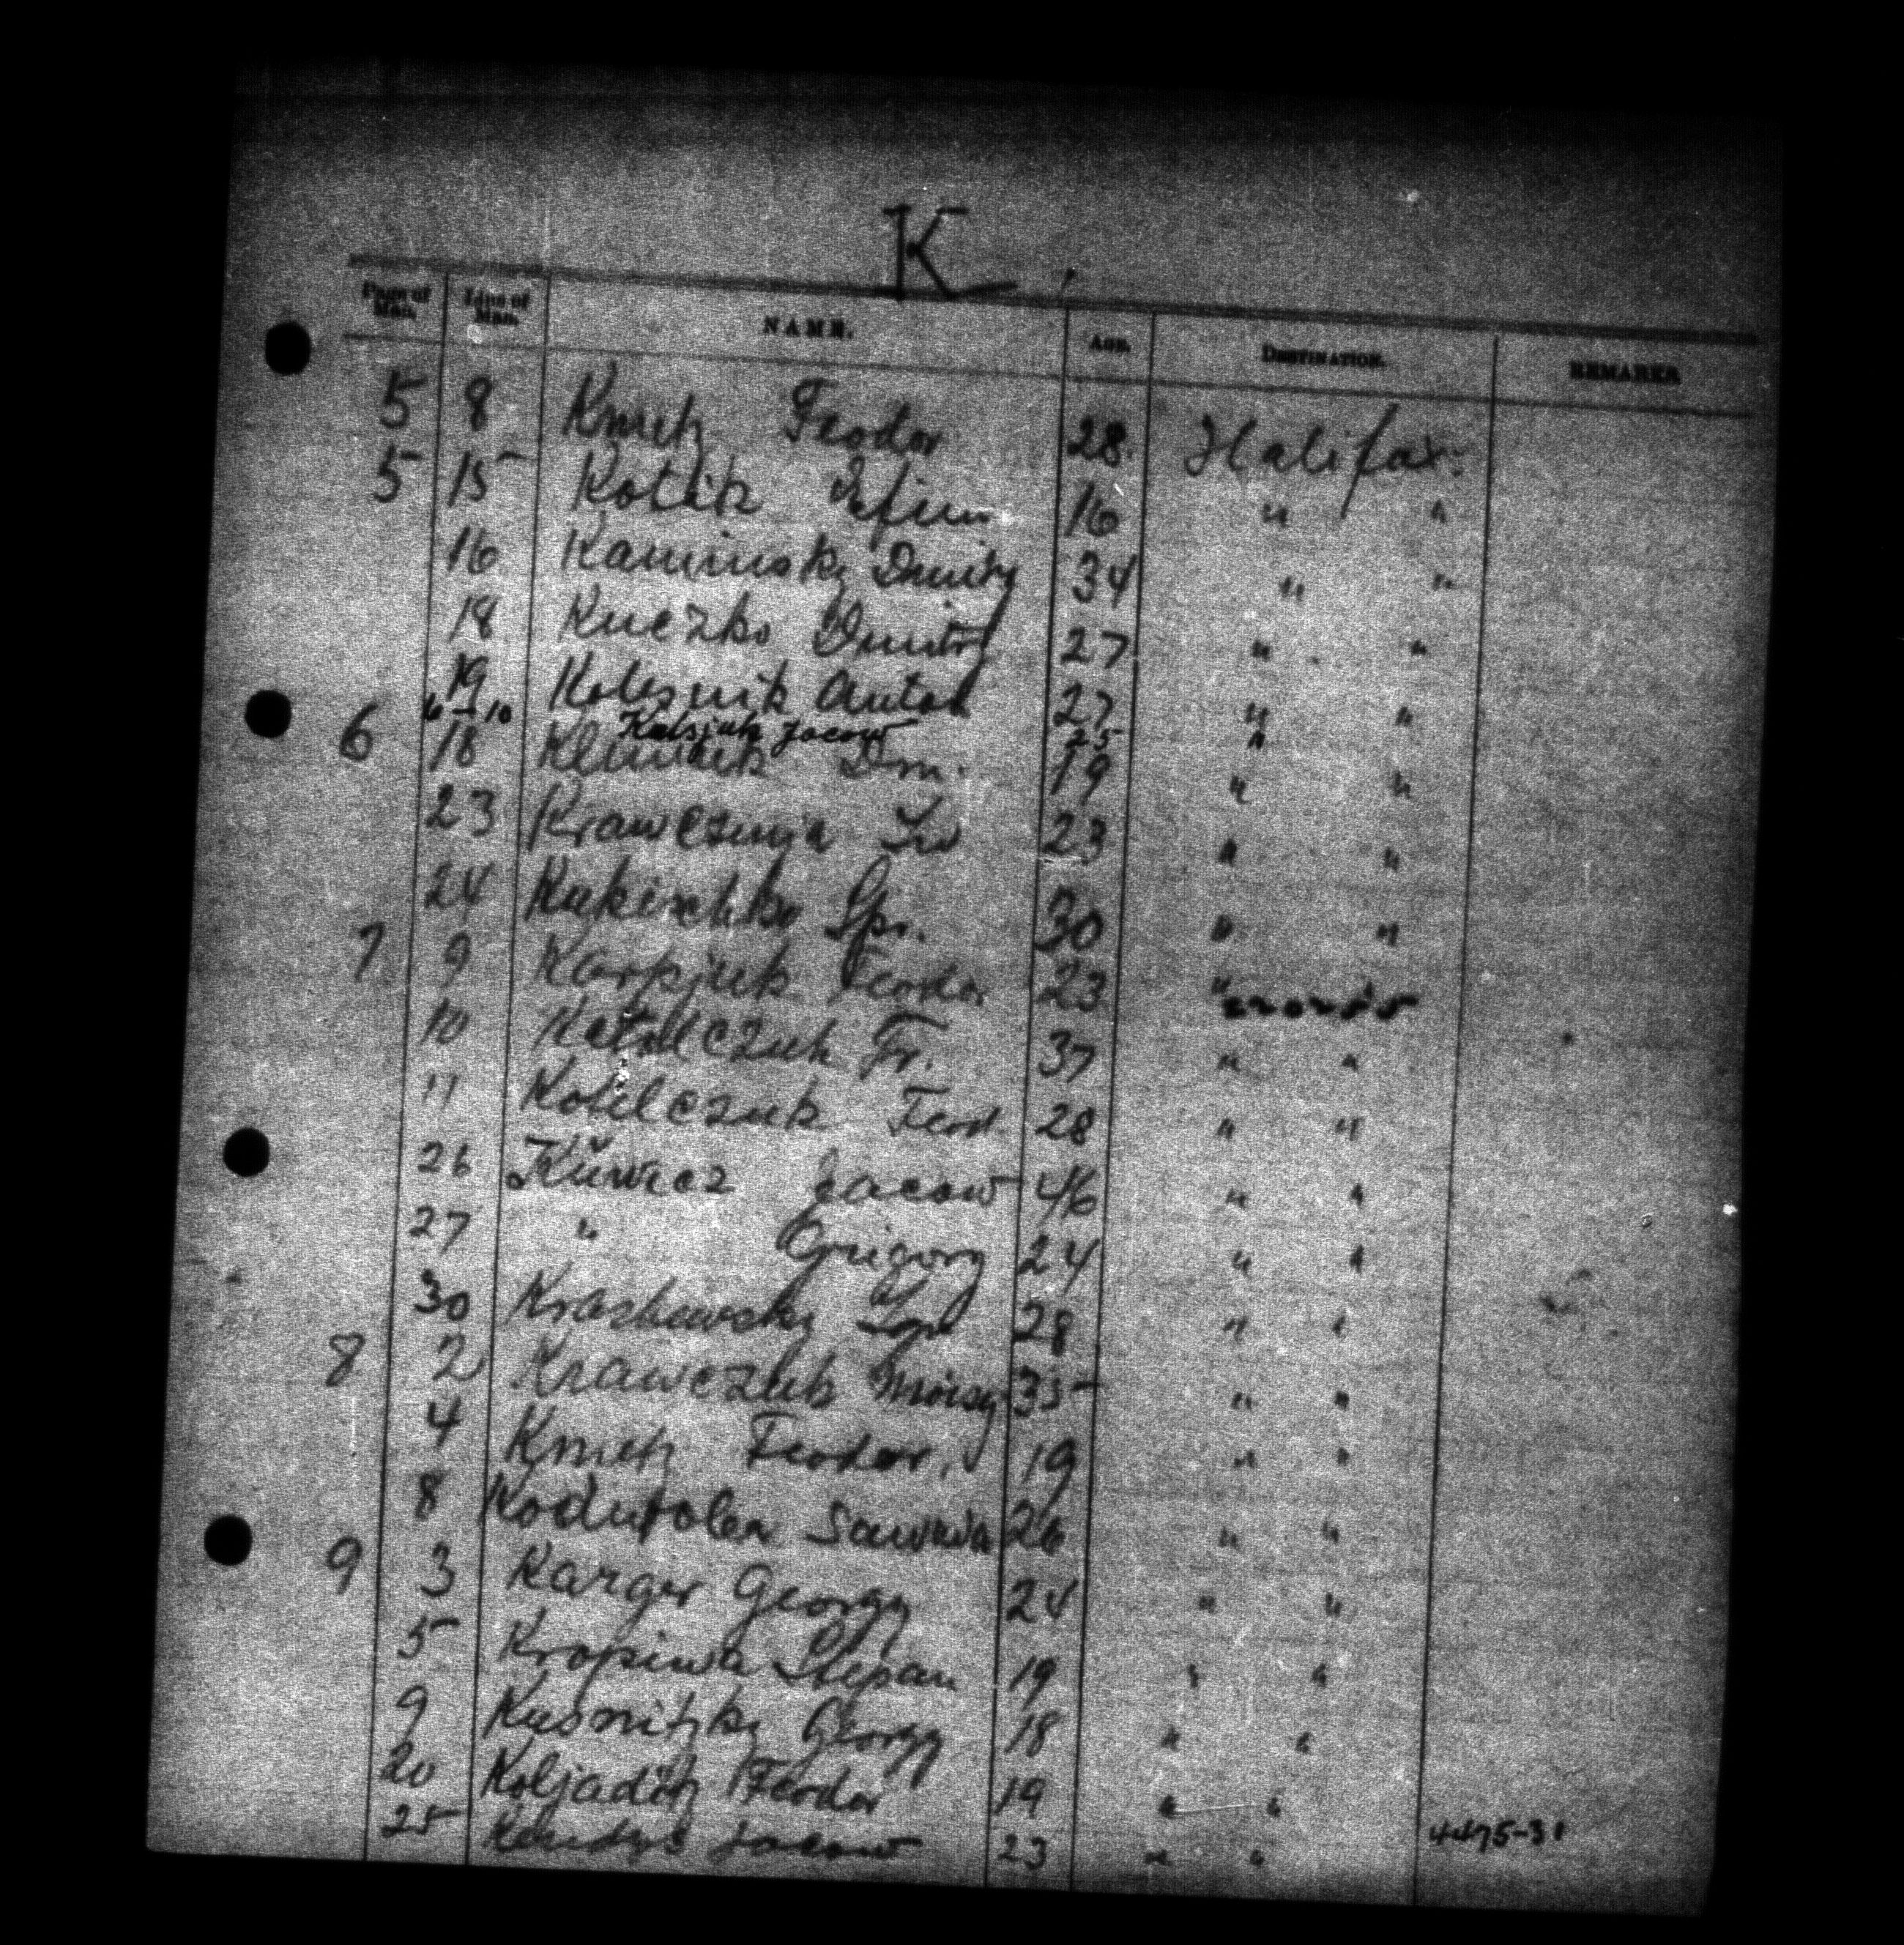 K.
Page of Man. Line of Man. NAME. AGE. DESTINATION. REMARKS
5 8 Kmetz Feodor 28. Halifax:
5 15 Kotik Efim 16 " "
16 Kaminsky Dmitry 34 " "
18 Kuczko Dmitry 27 " "
19 Kolesnik Anton 27 " "
6-10 Kalsjuk Jacow 25 "
6 18 Dm. 19 " "
23 Krawczuja Iw 23 " "
24 Spir. 30 " "
7 9 Karpjuk Feodor 23 "
10 Fr. 37 " "
11 Kotelczuk Feod. 28 " "
26 Jacow 46 " "
27 " Grigory 24 " "
30 28 " "
8 2 Krawczuk Moisy 35 " "
4 Kmetz Feodor, 19 " "
8 26 " "
9 3 Karger Georgy 24 " "
5 Kropiwa Stepan 19 " "
9 Kusnitzky Georgy 18 " "
20 Koljaditz Feodor 19 " "
25 Jacow 23 " "
4475-31